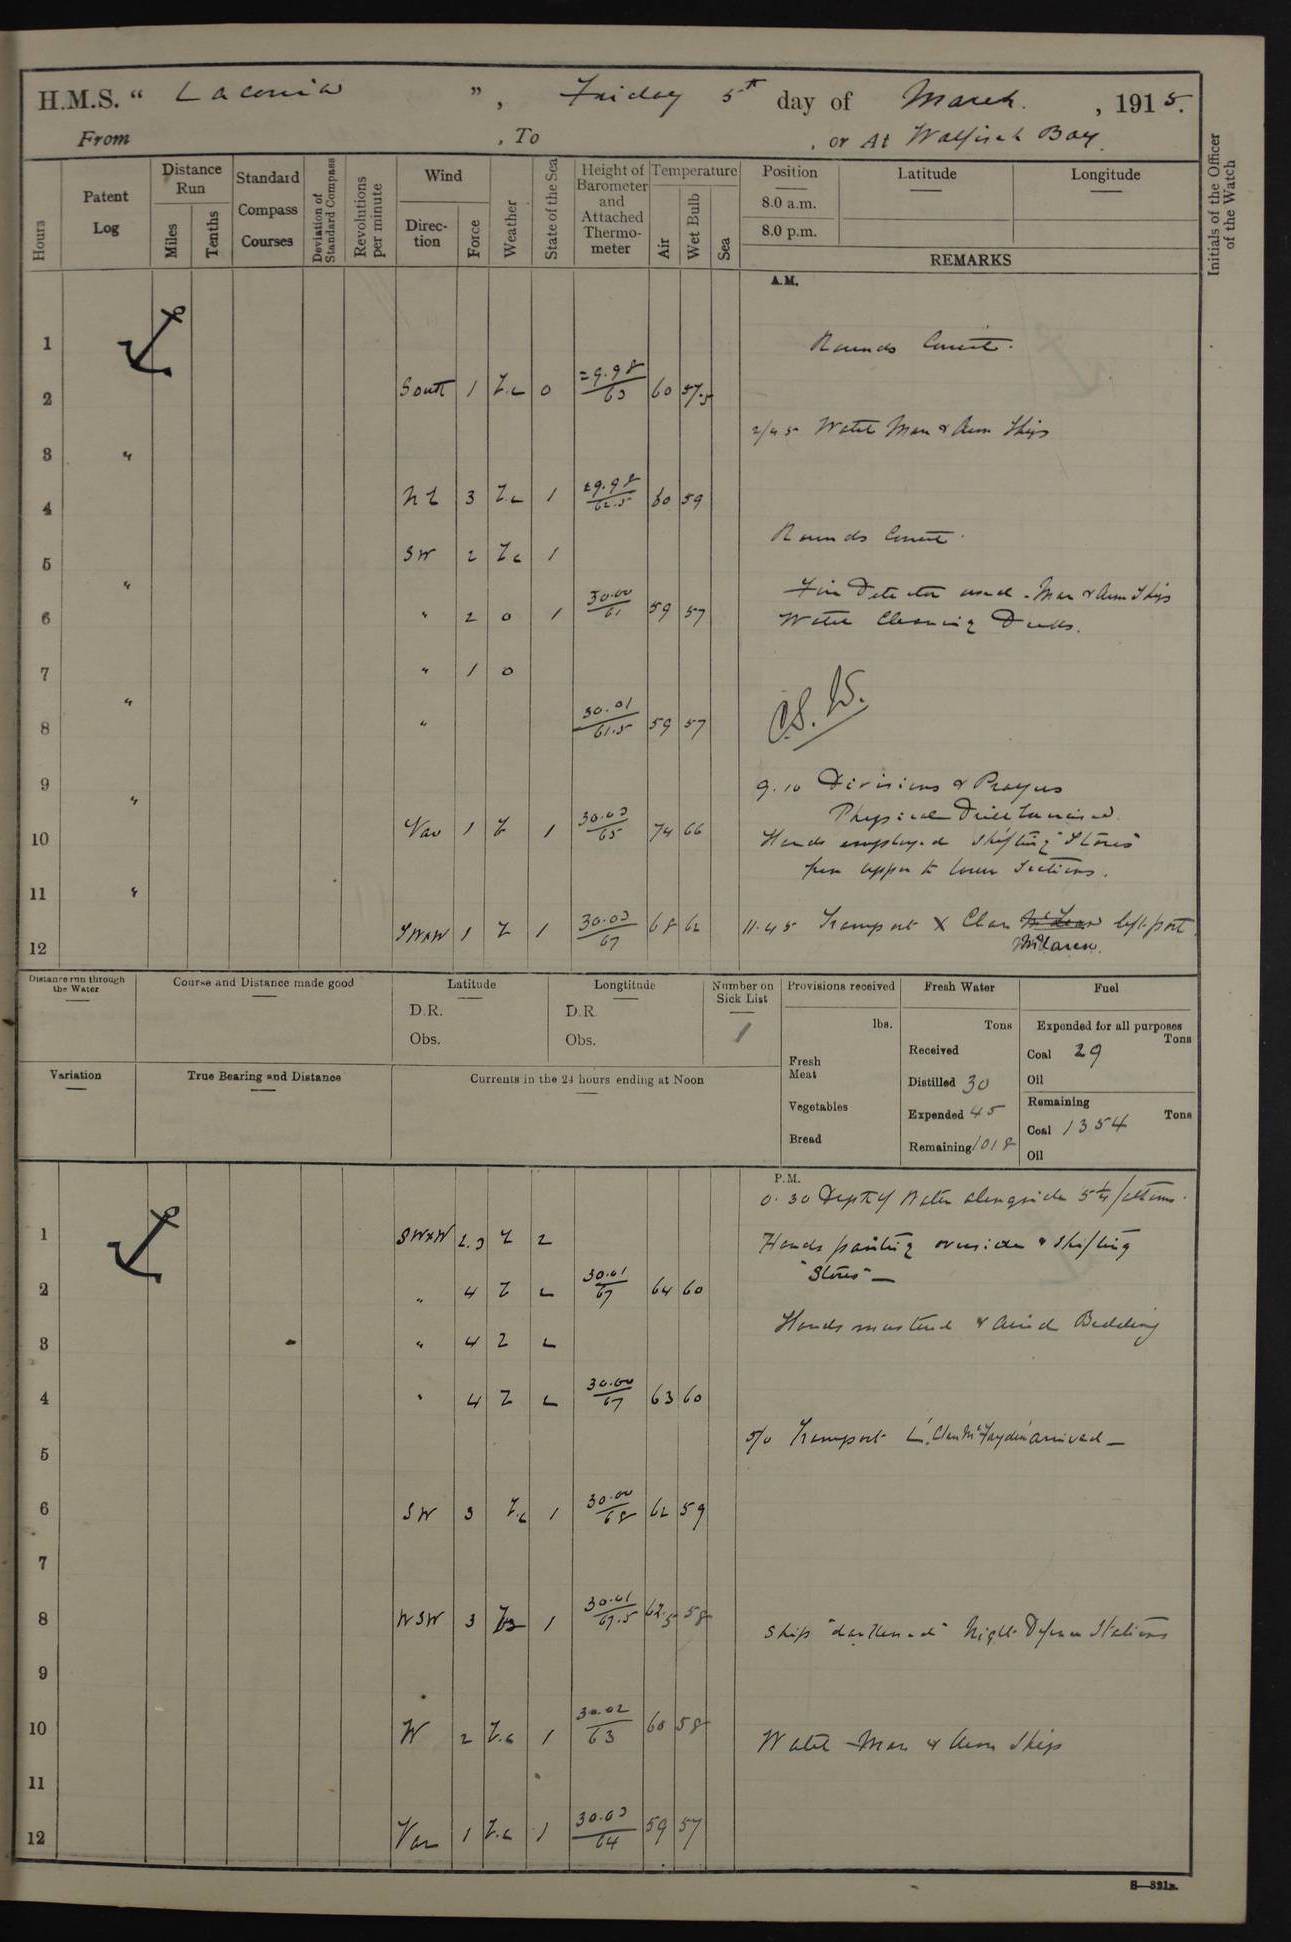 H.M.S. " Laconia ", Friday 5th day of March, 1915.
From , To , or At Walfisch Bay.
Hours
Patent Log
Distance Run
Miles
Tenths
Standard Compass Courses
Deviation of Standard Compass
Revolutions per minute
Wind
Direc-tion
Force
Weather
State of the Sea
Height of Barometer and Attached Thermo-meter
Temperature
Air
Wet Bulb
Sea
Position
8.0 a.m.
8.0 p.m.
Latitude
Longitude
REMARKS
Initials of the Officer of the Watch
A.M.
1 Rounds Correct.
2 South 1 Z.c 0 29.98/63 60 57.5
2/45 Watch Man & Arm Ships
3 "
4 NE 3 Z.c 1 29.98/62.5 60 59
Rounds Correct.
5 SW 2 Z.c 1
" Fire Detector used. Man & Arm Ships
6 " 2 0 1 30.00/61 59 57 Watch Cleaning Decks.
7 " 1 0
8 " " 30.01/61.5 59 57
9 9.10 Divisions & Prayers
" Physical Drill Exercised.
10 Var 1 Z 1 30.03/65 74 66 Hands employed shifting "Stores"
from upper to lower Sections.
11 "
12 SWxW 1 Z 1 30.03/67 68 62 11.45 Transport X Clan left port.
McLaren.
Distance run through the Water
Course and Distance made good
Latitude
D.R.
Obs.
Longtitude
D.R.
Obs.
Number on Sick List
1
Provisions received
lbs.
Fresh Meat
Vegetables
Bread
Fresh Water
Tons
Received
Distilled 30
Expended 45
Remaining 1018
Fuel
Expended for all purposes
Tons
Coal 29
Oil
Remaining
Tons
Coal 1354
Oil
Variation
True Bearing and Distance
Currents in the 24 hours ending at Noon
P.M.
0.30 Depth of Water alongside 5¼ fathoms.
1 SWxW 2.3 Z 2 Hands painting overside & shifting
"Stores" —
2 " 4 Z 2 30.01/67 64 60
Hands mustered & Aired Bedding
3 " 4 Z 2
4 " 4 Z 2 30.00/67 63 60
5/0 Transport L. Clan McFayden arrived —
5
6 SW 3 Z.c 1 30.00/68 62 59
7
8 WSW 3 1 30.01/67.5 62.5 58 Ship "darkened" Night Defence Stations
9
10 W 2 Z.c 1 30.02/63 60 58 Watch Man & Arm Ships
11
12 Var 1 Z.c 1 30.03/64 59 57
S—321a.